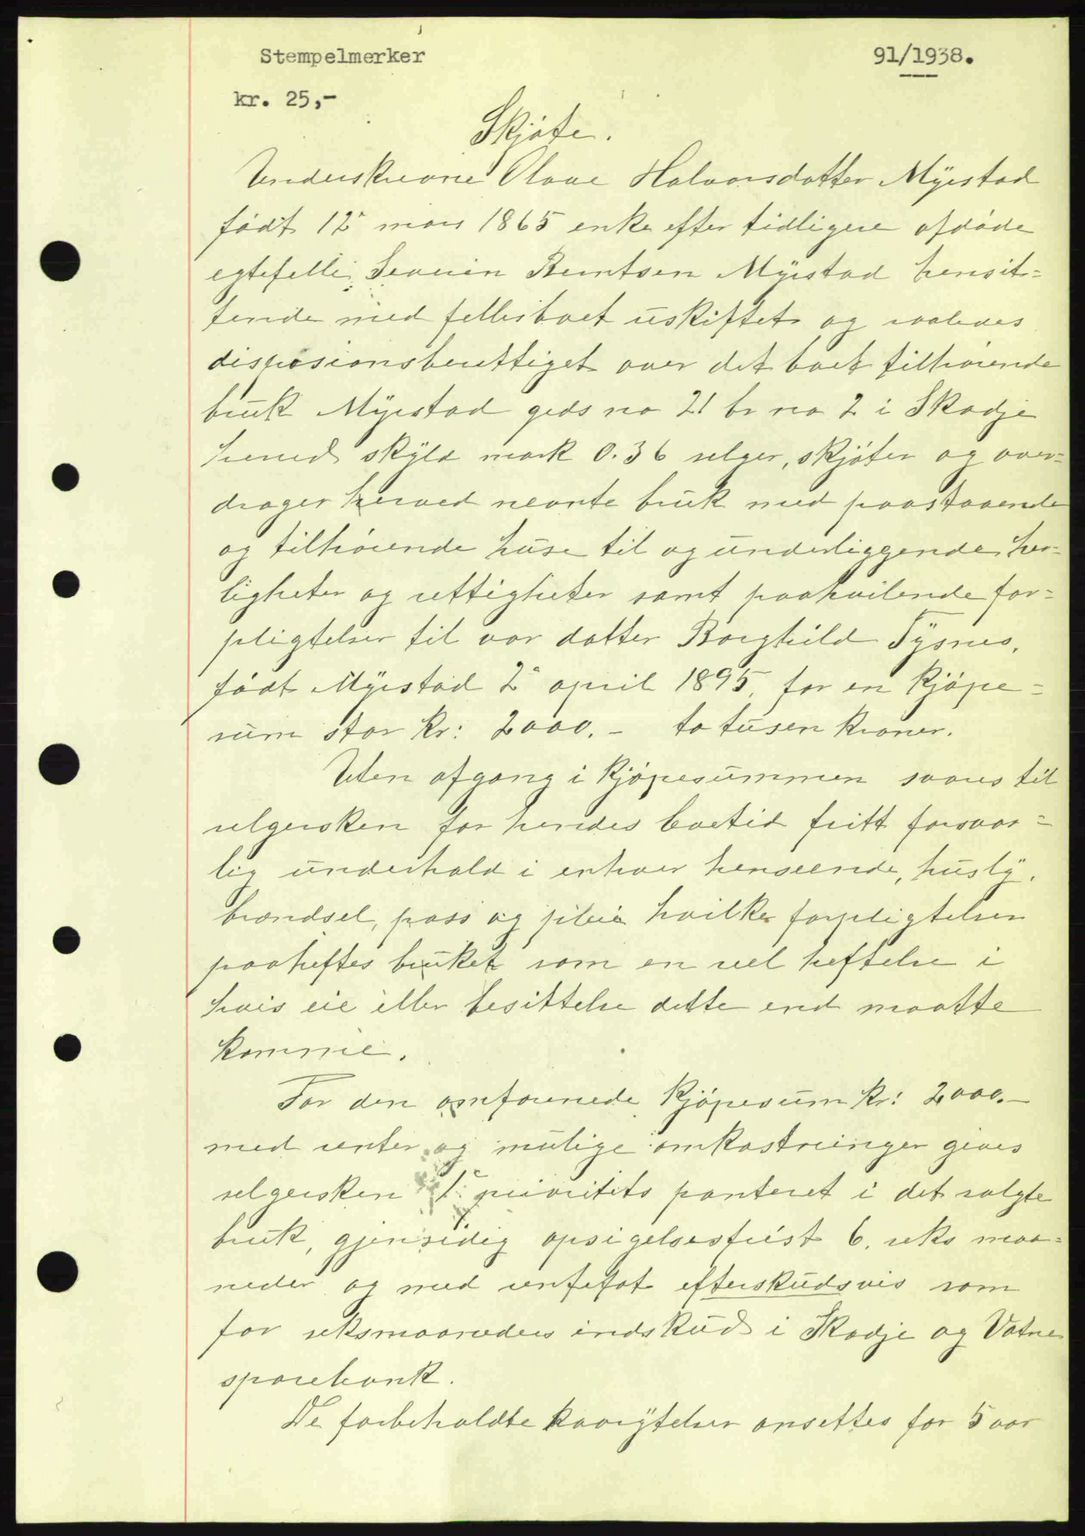 Stempelmerker 91/1938.
kr. 25,-
Skjøte.
Underskrevne Olave Halvorsdatter Myrstad
født 12te mars 1865 enke efter tidligere afdøde
egtefelle Severin Berntsen Myrstad hensit=
tende med fellesboet uskiftet og saaledes
disposionsberettiget over det boet tilhørende
bruk Myrstad gards no 21 br no 2 i Skodje
herred skyld mark 0.36 selger, skjøter og over=
drager herved nevnte bruk med paastaaende
og tilhørende huse til og underliggende her=
ligheter og rettigheter samt paahvilende for=
pligtelser til vor datter Borghild Tysnes,
født Myrstad 2de april 1895, for en kjøpe=
sum stor kr: 2000.- to tusen kroner.
Uten afgang i kjøpesummen svares til
selgersken for hendes levetid fritt forsvar=
lig underhold i enhver henseende, husly,
brændsel, pass og pleie hvilke forpligtelser
paaheftes bruket som en reel heftelse i
hvis eie eller besittelse dette end maatte
komme.
For den omforenede kjøpesum kr: 2000.-
med renter og mulige omkostninger gives
selgersken 1ste prioritets panteret i det solgte
bruk, gjensidig opsigelsesfrist 6. seks maa=
neder og med rentefot efterskudsvis som
for seksmaaneders indskud i Skodje og Vatne
sparebank.
De forbeholdte kaarytelser ansettes for 5 aar